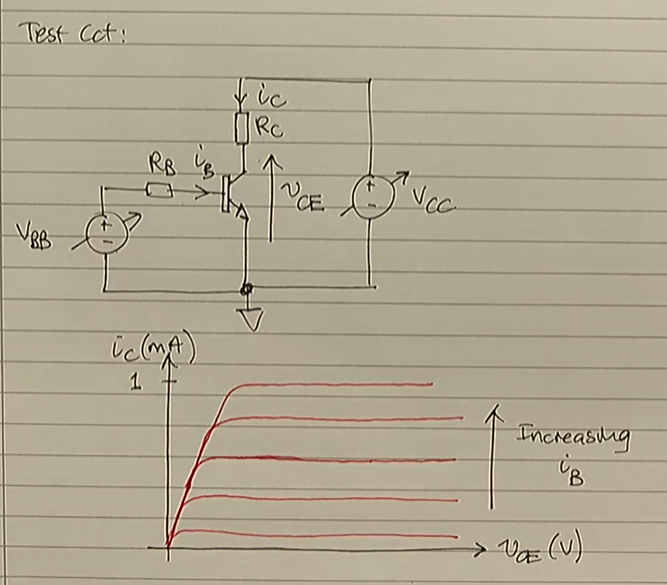 Test Cct:
iC
RC
RB
iB
+
-
vCE
+
-
VCC
VBB
+
-
iC(mA)
1
Increasing
iB
vCE (V)